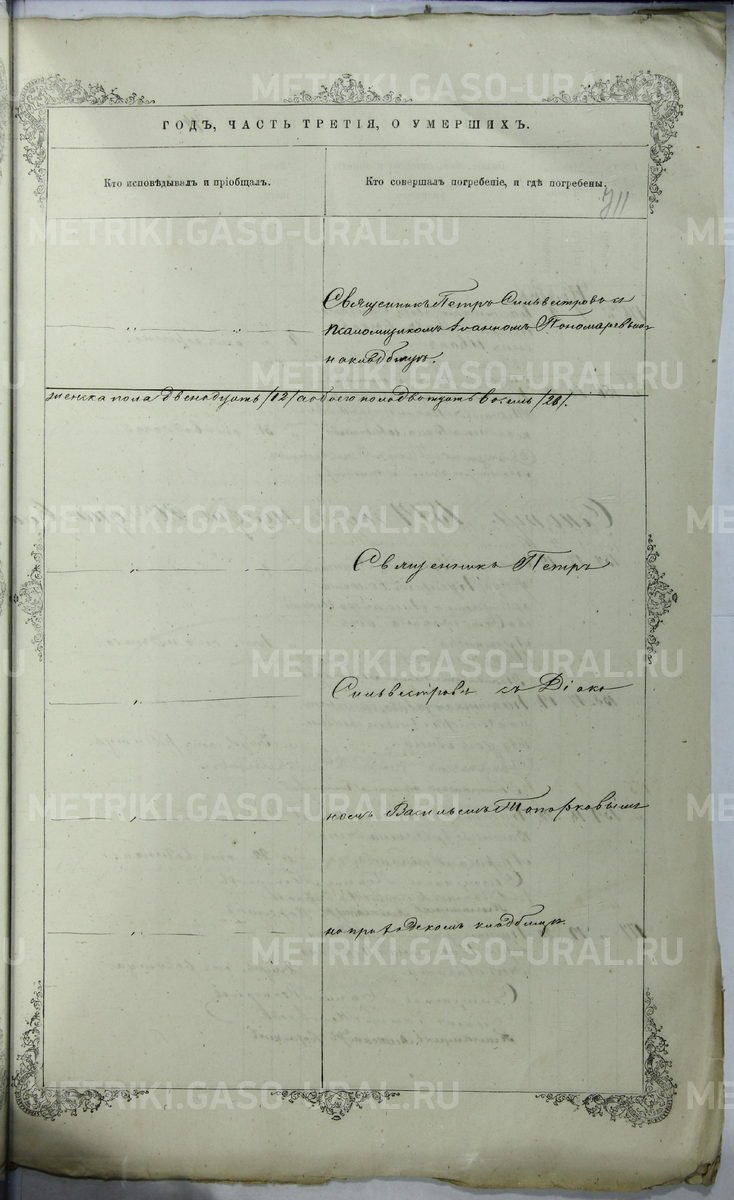 ГОДЪ, ЧАСТЬ ТРЕТІЯ, О УМЕРШИХЪ.
Кто исповѣдывалъ и пріобщалъ.
Кто совершалъ погребеніе, и гдѣ погребены.
711
Священникъ Петръ Сильвестровъ съ
псаломщикомъ Іоанномъ Пономаревымъ
на кладбищѣ.
женска пола двенадцать /12/ а обоего пола двадцать восемь /28/.
Священникъ Петръ
Сильвестровъ съ Діако
номъ Васильемъ Топорковымъ
на кладбищѣ.
METRIKI.GASO-URAL.RU